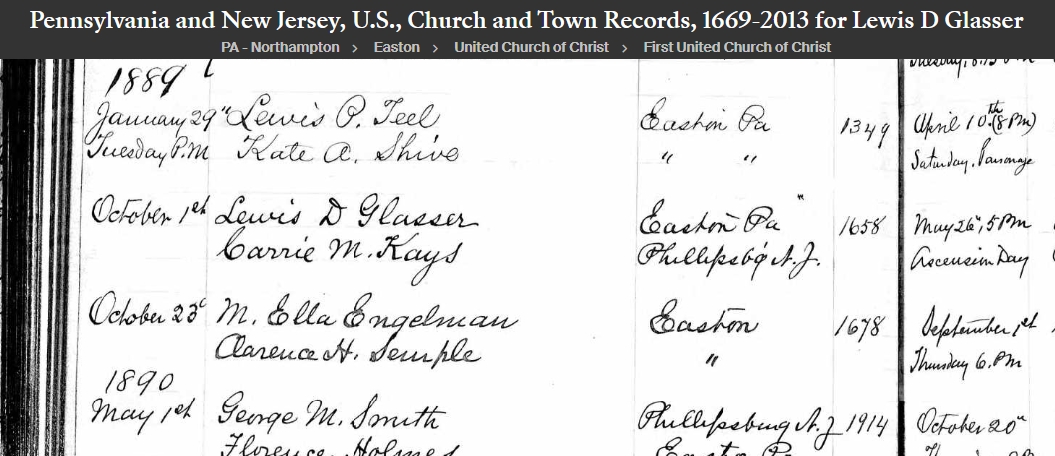 Pennsylvania and New Jersey, U.S., Church and Town Records, 1669-2013 for Lewis D Glasser
PA - Northampton > Easton > United Church of Christ > First United Church of Christ
1889
January 29" Lewis P. Teel Easton Pa 1349 April 10th (8 PM)
Tuesday P.M Kate A. Shive " " Saturday. Parsonage
October 1st Lewis D Glasser Easton Pa " 1658 May 26", 5 PM
Carrie M. Kays Phillipsbg N.J. Ascension Day
October 23d M. Ella Engelman Easton 1678 September 1st
Clarence H. Semple " Thursday 6. PM
1890
May 1st George M. Smith Phillipsburg N.J 1914 October 20"
Florence Holmes Easton Pa